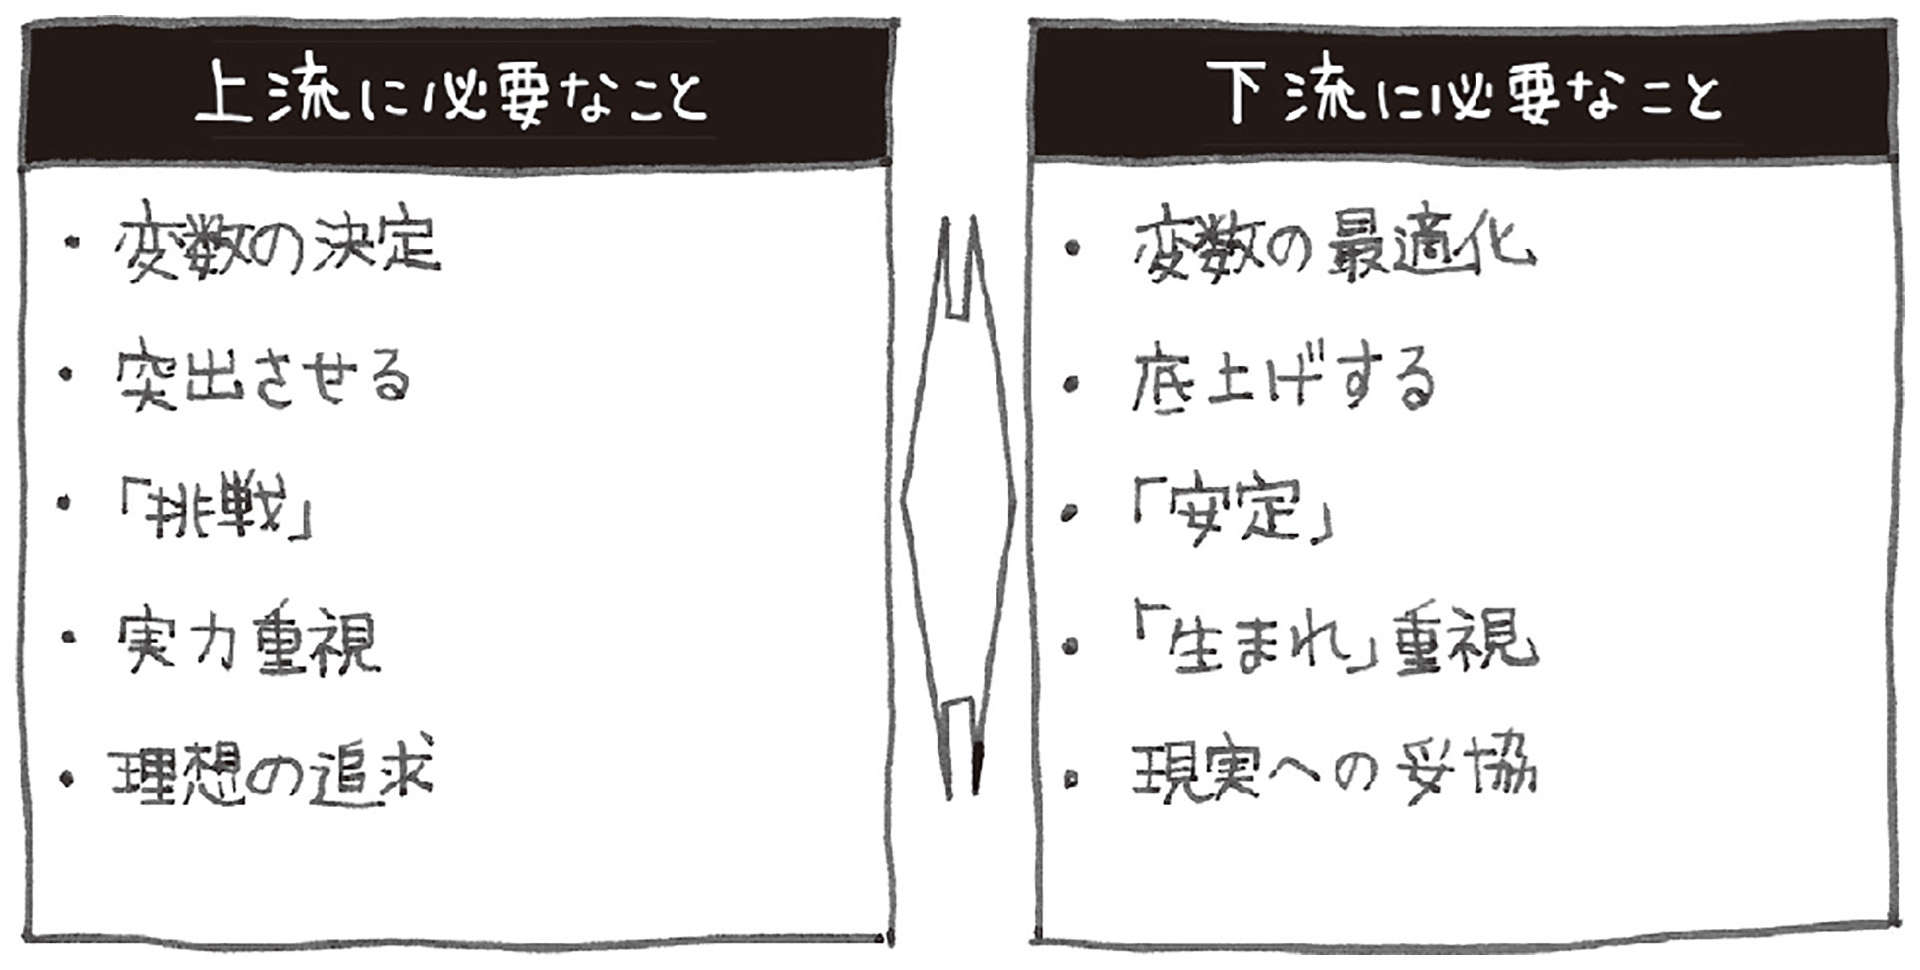 上流に必要なこと
・変数の決定
・突出させる
・「挑戦」
・実力重視
・理想の追求
下流に必要なこと
・変数の最適化
・底上げする
・「安定」
・「生まれ」重視
・現実への妥協